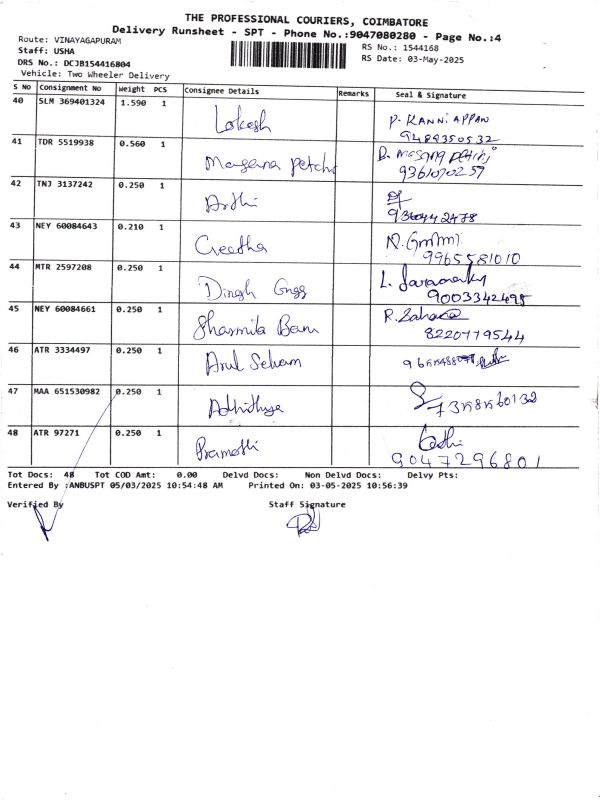 THE PROFESSIONAL COURIERS, COIMBATORE
Delivery Runsheet - SPT - Phone No.:9047080280 - Page No.:4
Route: VINAYAGAPURAM
Staff: USHA
RS No.: 1544168
DRS No.: DCJB154416804
RS Date: 03-May-2025
Vehicle: Two Wheeler Delivery
S No Consignment No Weight PCS Consignee Details Remarks Seal & Signature
40 SLM 369401324 1.590 1 Lokesh P. KANNIAPPAN
9489350532
41 TDR 5519938 0.560 1
9361070257
42 TNJ 3137242 0.250 1 Arthi
9360442478
43 NEY 60084643 0.210 1 Geetha
9965581010
44 MTR 2597208 0.250 1 Dinesh L.
9003342495
45 NEY 60084661 0.250 1 Sharmila Banu R. Sahana
8220779544
46 ATR 3334497 0.250 1 Arul Selvam
47 MAA 651530982 0.250 1 Adhithya
48 ATR 97271 0.250 1 Pramothi
9047296801
Tot Docs: 48 Tot COD Amt: 0.00 Delvd Docs: Non Delvd Docs: Delvy Pts:
Entered By :ANBUSPT 05/03/2025 10:54:48 AM Printed On: 03-05-2025 10:56:39
Verified By Staff Signature